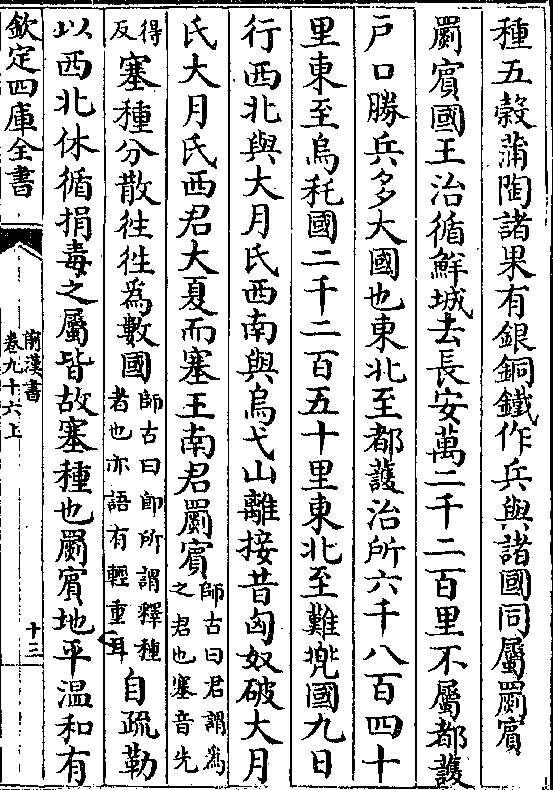 種五穀蒲陶諸果有銀銅鐵作兵與諸國同屬罽賓
罽賓國王治循鮮城去長安萬二千二百里不屬都護
戸口勝兵多大國也東北至都護治所六千八百四十
里東至烏秅國二千二百五十里東北至難兜國九日
行西北與大月氏西南與烏弋山離接昔匈奴破大月
氏大月氏西君大夏而塞王南君罽賓師古曰君謂為之君也塞音先
得反塞種分散往往為數國師古曰即所謂釋種者也亦語有輕重耳自疏勒
以西北休循捐毒之屬皆故塞種也罽賓地平溫和有
欽定四庫全書
前漢書
卷九十六上
十三